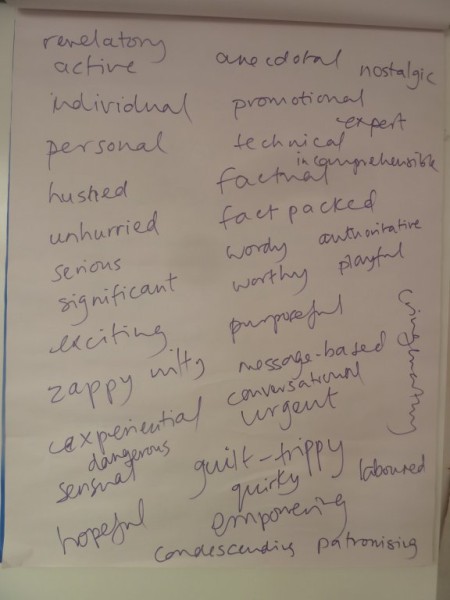 revelatory anecdotal nostalgic
active
individual promotional
expert
personal technical
incomprehensible
hushed factual
unhurried fact packed
wordy authoritative
serious worthy playful
significant
exciting purposeful
zappy witty message-based
conversational
experiential urgent
dangerous
sensual guilt-trippy laboured
quirky
hopeful empowering
condescending patronising